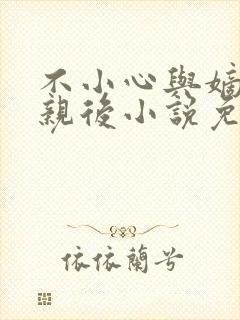 不小心與嫡
親後小說免
依依蘭兮